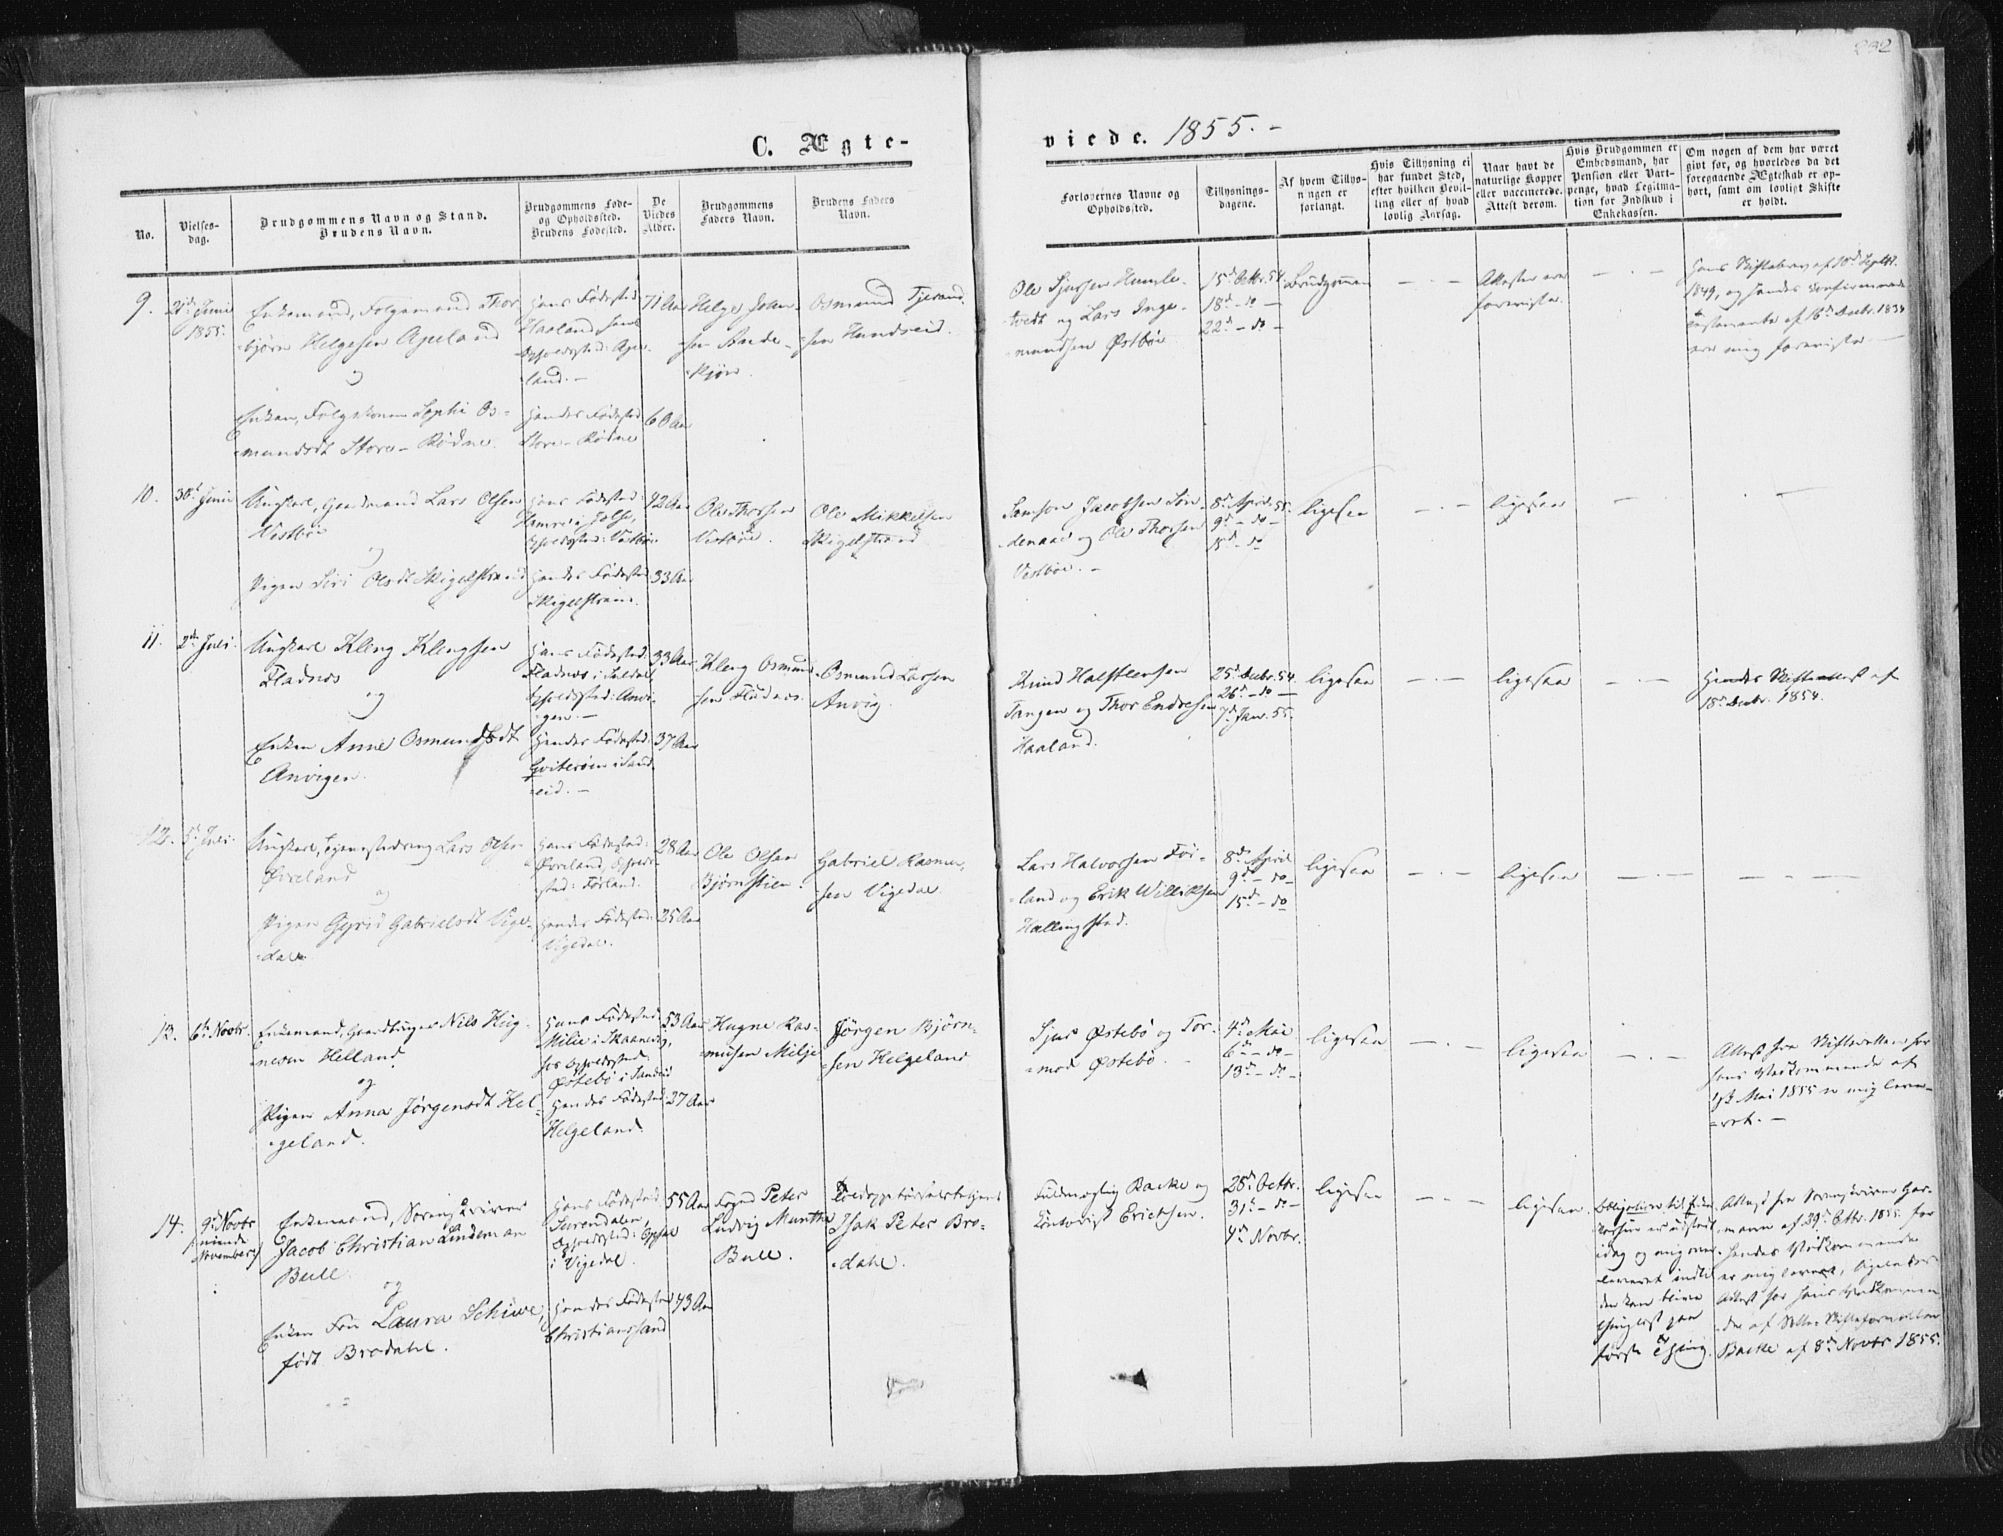 232
C. Ægte-
viede. 1855.-
No.
Vielses-
dag.
Brudgommens Navn og Stand.
Brudens Navn.
Brudgommens Føde-
og Opholdssted.
Brudens Fødested.
De
Viedes
Alder.
Brudgommens
Faders Navn.
Brudens Faders
Navn.
Forlovernes Navne og
Opholdssted.
Tillysnings-
dagene.
Af hvem Tillys-
ningen er
forlangt.
Hvis Tillysning ei
har fundet Sted,
efter hvilken Bevil-
ling eller af hvad
lovlig Aarsag.
Naar havt de
naturlige Kopper
eller vaccinerede.
Attest derom.
Hvis Brudgommen er
Embedsmand, har
Pension eller Vart-
penge, hvad Legitima-
tion for Indskud i
Enkekassen.
Om nogen af dem har været
givt før, og hvorledes da det
foregaaende Ægteskab er op-
hørt, samt om lovligt Skifte
er holdt.
9.
21de Juni
1855.
Enkemand, Folgemand Thor-
bjørn Helgesen Apeland
og
Enken, Folgekonen Sophi Os-
mundsdt Store-Rødne.
Hans Fødested
Haaland, hans
Opholdssted: Ape-
land.-
Hendes Fødested
Store-Rødne
71 Aar
60 Aar
Helge John-
sen Ande-
Osmund Tjerand-
sen Hundseid.
Ole Sjursen Humle-
tvedt og Lars Inge-
mundsen Østbøe
15de Octbr. 54
18de - do -
22de - do -
Brudgommen
- . -
Attester ere
foreviste.
- . -
Hans Skiftebrev af 10de Septbr.
1849, og hendes confirmerede
Testamente af 16de Decbr. 1834
ere mig foreviste. -
10.
30te Juni
Ungkarl, Gaardmand Lars Olsen
Vestbøe
og
Pigen Siri Olsdt Skigelstrand
Hans Fødested:
Opholdssted: Vestbøe
Hendes Fødested
Skigelstrand.
42 Aar
33 Aar
Ole Thorsen
Vestbøe.
Ole Mikkelsen
Skigelstrand
Samson Jacobsen Søn-
denaae og Ole Thorsen
Vestbøe. -
8de April 55.
9de - do -
15de - do
ligesaa
- . -
ligesaa
-
- . -
11.
2den Juli.
Ungkarl Kleng Klengsen
Fladnes
og
Enken Anne Osmundsdt
Anvigen.
Hans Fødested:
Fladnes i Suldal
Opholdssted: Anvi-
gen. -
Hendes Fødested:
Hvitesøen i Sand-
eid. -
33 Aar
37 Aar
Kleng Osmund-
sen Fladnes.
Osmund Larsen
Anvig.
Knud Halsteensen
Tangen og Thor Endresen
Haaland.
25de Decbr. 54.
26de - do -
7de Janr. 55.
ligesaa
- . -
ligesaa
- . -
Hendes Skifteattest af
18de Decbr. 1854.
12.
5te Juli.
Ungkarl, Lars Olsen
Øvreland
og
Pigen Gyrid Gabrielsdt Vige-
dal
Hans Fødested:
Øvreland, Ophold-
sted: Førland.
Hendes Fødested:
Vigedal.
28 Aar
25 Aar
Ole Olsen
Bjørnstien.
Gabriel Rasmus-
sen Vigedal
Lars Halvorsen Før-
land og Erik Willicksen
Hallingstad.
8de April
9de - do -
15de - do
ligesaa
- . -
ligesaa
- . -
- . -
13.
6te Novbr.
Enkemand, Gaardbruger Nils Hog-
nesen Helland
og
Pigen Anna Jørgensdt Hel-
geland.
Hans Fødested
Milje i Skaanevig,
hos Opholdssted
Østebø i Sandeid
Hendes Fødested:
Helgeland.
53 Aar
27 Aar
Hogne Ras-
musen Milje
Jørgen Bjørn-
sen Helgeland
Sjur Østebø og Tor-
mod Østebø. -
4de Mai
6te - do -
13de - do -
ligesaa
- . -
ligesaa
- . -
Attest fra Skifteretten for
hans Vedkommende af
Mai 1855 er mig leve-
ret. -
14.
9de Novbr
(niende
November)
Enkemand, Sorenskriver
Jacob Christian Lindeman
Bull.
og
Enken Fru Laura Schiwe,
født Brodahl.
Hans Fødested:
Surendalen,
Opholdssted: Opsal
i Vigedal.
Hendes Fødested
Christianssand
55 Aar
43 Aar
Foged Peter
Ludvig Munthe
Bull.
Isak Peter Bro-
dahl.
Fuldmægtig Backe og
Erichsen.
28de Octbr.
31te - do -
4de Novbr.
ligesaa
- . -
ligesaa.
Obligation til Enke-
kassen er udstedt
idag og mig over-
leveret indtil
den kan blive
thinglæst paa
første Thing.
Attest fra Sorenskriver Har-
mann af 29de Octbr. 1855 for
hendes Vedkommende
er mig leveret, ligeledes
Attest for hans Vedkommen-
de af Skifteforvalter
Backe af 8de Novbr 1855.